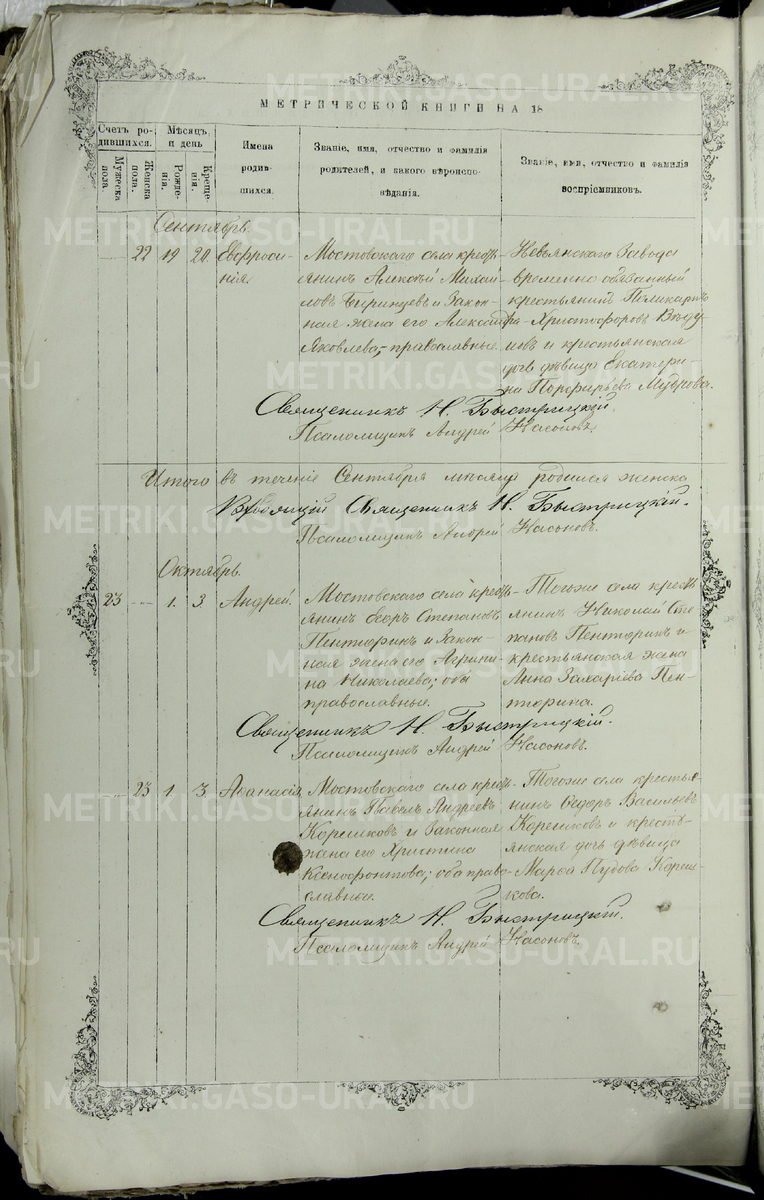 МЕТРИЧЕСКОЙ КНИГИ НА 18
Счетъ родившихся.
Мужеска пола.
Женска пола.
Мѣсяцъ и день
Рожденія.
Крещенія.
Имена родившихся.
Званіе, имя, отчество и фамилія родителей, и какого вѣроисповѣданія.
Званіе, имя, отчество и фамилія воспріемниковъ.
Сентябрь.
22 19 20. Евфросинія.
Мостовскаго села кресть-
янинъ Алексѣй Михай-
ловъ и Закон-
ная жена его Александра
Яковлева, православные.
Невьянскаго Завода
временно обязанный
крестьянинъ Поликарпъ
Христофоровъ
и крестьянская
дочь дѣвица Екатери-
на Порфирьева Мудрова.
Священникъ Н. Быстрицкій.
Псаломщикъ Андрей Насоновъ.
Итого въ теченіе Сентября мѣсяца родился женска
Священникъ Н. Быстрицкій.
Псаломщикъ Андрей Насоновъ.
Октябрь.
23 1. 3 Андрей.
Мостовскаго села кресть-
янинъ Степановъ
Пенторинъ и Закон-
ная жена его Агрипи-
на Николаева; оба
православные.
Тогоже села кресть-
янинъ Николай Сте-
пановъ Пенторинъ и
крестьянская жена
Анна Захаріева Пен-
торина.
Священникъ Н. Быстрицкій.
Псаломщикъ Андрей Насоновъ.
23 1. 3. Аѳанасія
Мостовскаго села кресть-
янинъ Павелъ Андреевъ
Корешковъ и Законная
жена его Христина
Ксенофонтова; оба право-
славные.
Тогоже села крестья-
нинъ Ѳедоръ Васильевъ
Корешковъ и кресть-
янская дочь дѣвица
Марѳа Пудова Кореш-
кова.
Священникъ Н. Быстрицкій.
Псаломщикъ Андрей Насоновъ.
METRIKI.GASO-URAL.RU